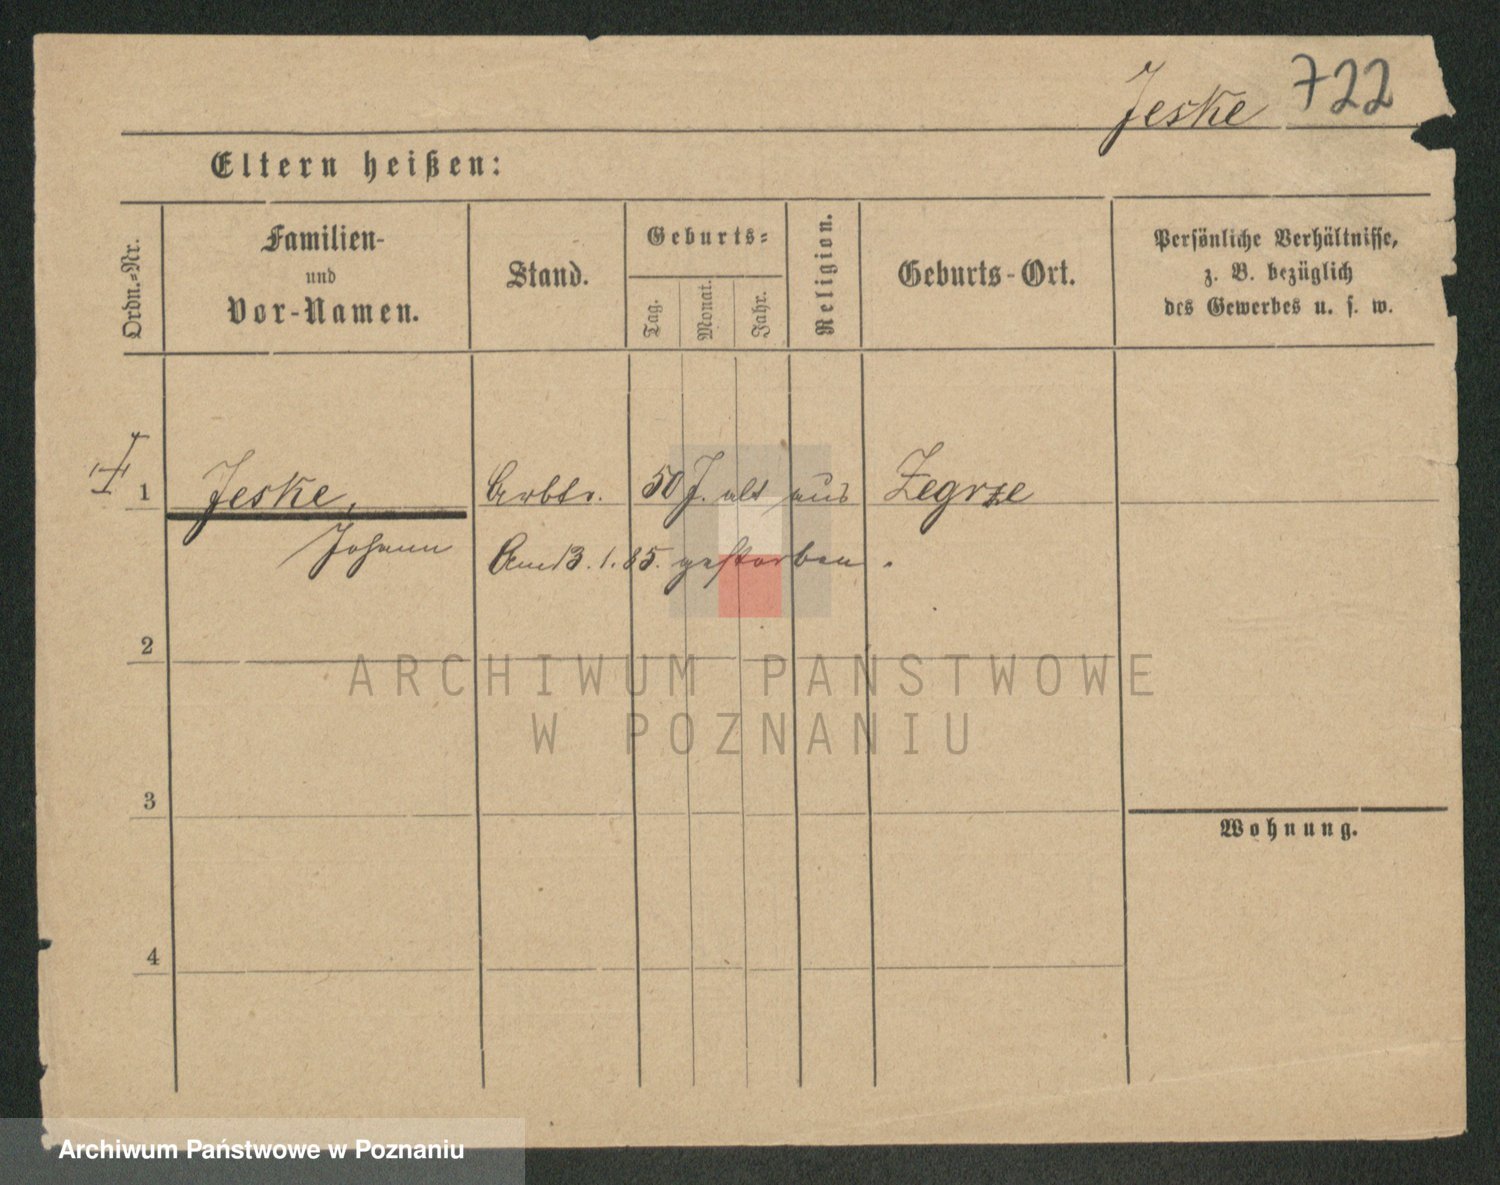 Jeske 722
Eltern heißen:
Ordn.-Nr.
Familien-
und
Vor-Namen.
Stand.
Geburts-
Tag.
Monat.
Jahr.
Religion.
Geburts-Ort.
Persönliche Verhältnisse,
z. B. bezüglich
des Gewerbes u. s. w.
1 Jeske, Arbtr. 50 J. alt aus Zegrze
Johann Am 13.1.85. gestorben.
2
ARCHIWUM PAŃSTWOWE
W POZNANIU
3
Wohnung.
4
Archiwum Państwowe w Poznaniu